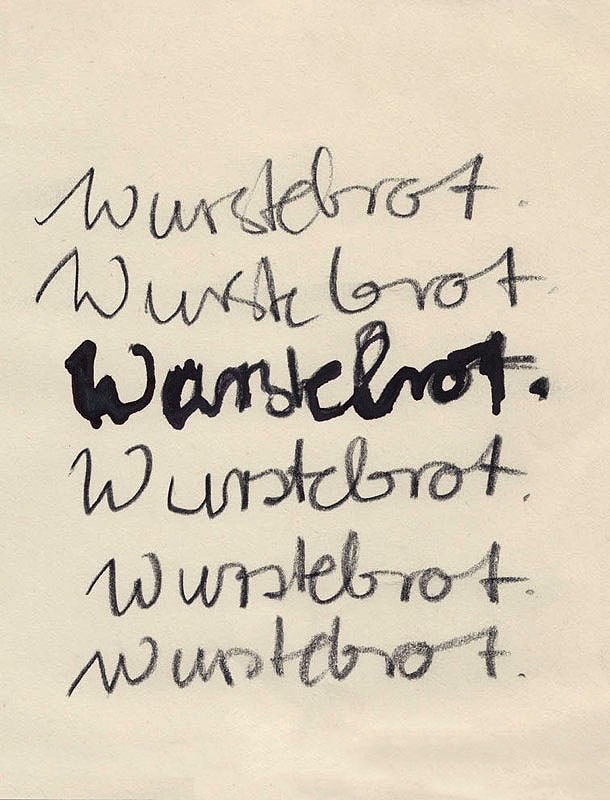 Wurstebrot.
Wurstebrot.
Wurstebrot.
Wurstebrot.
Wurstebrot.
Wurstebrot.